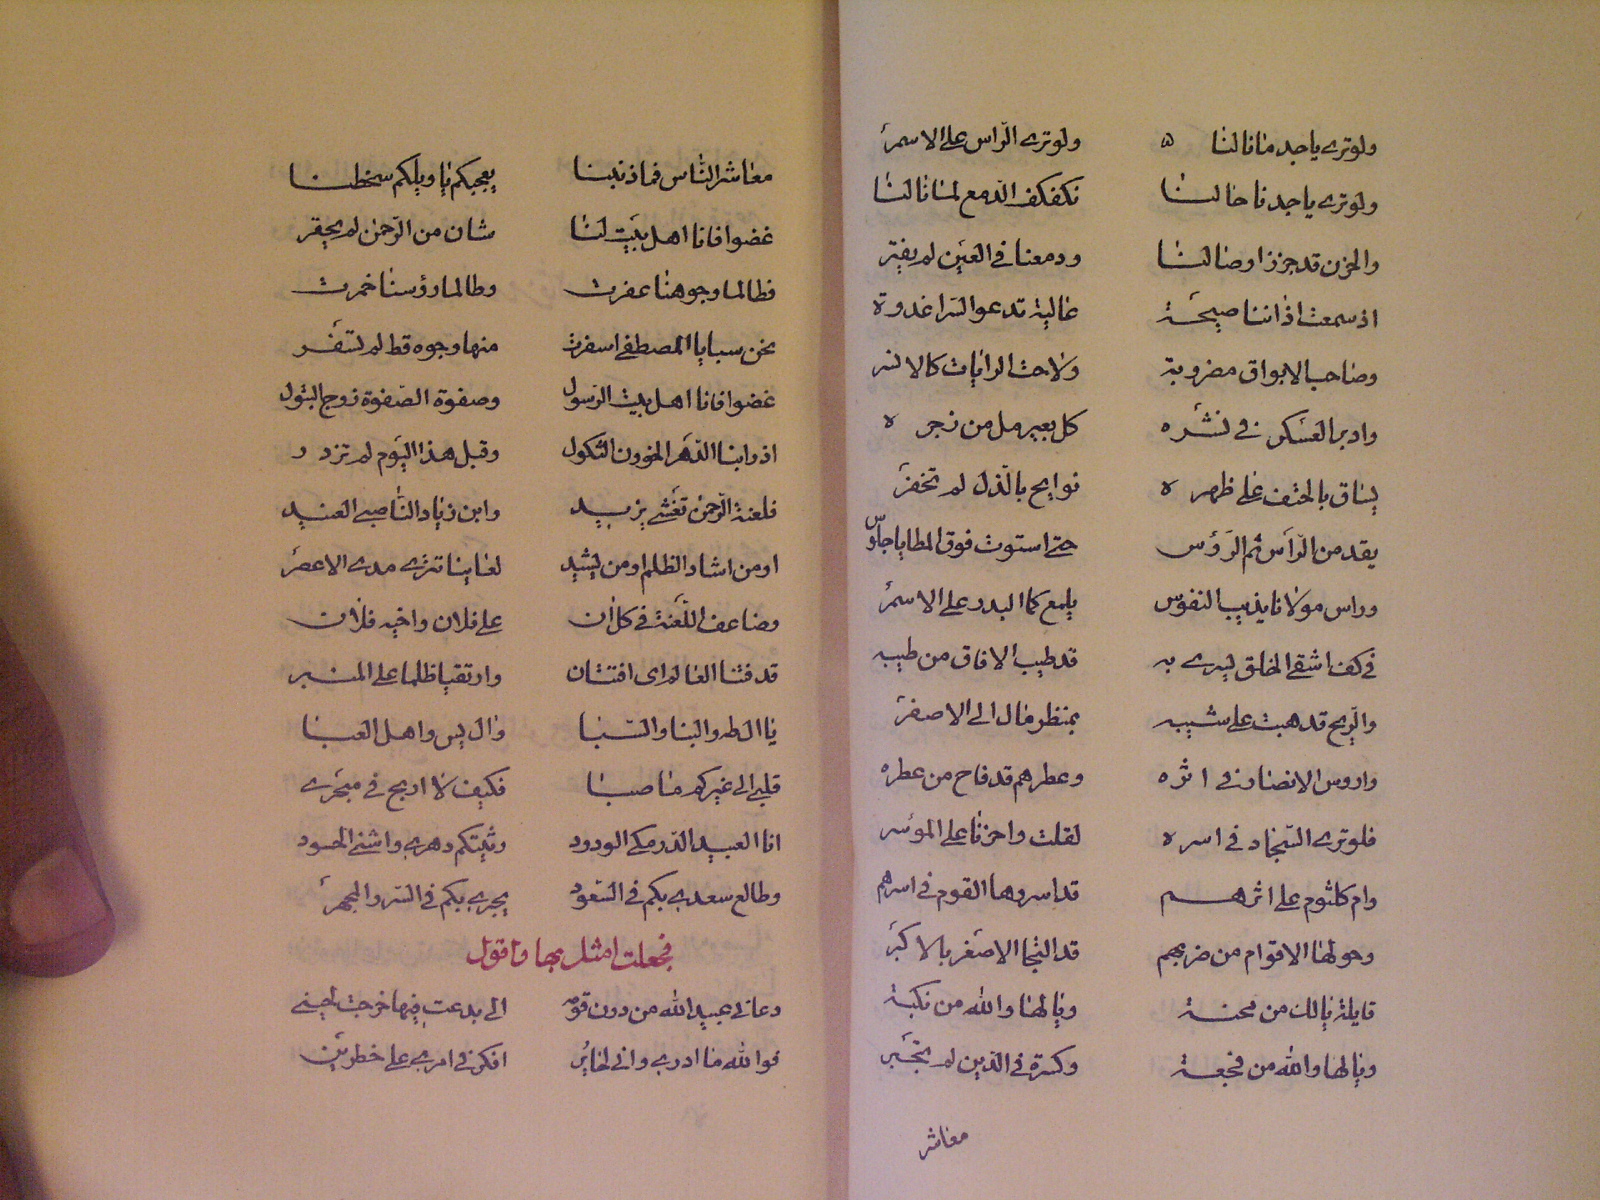 ولو ترى يا جد ما نا لنا ولو ترى الراس على الاسمر
ولو ترى يا جدنا حالنا نكفكف الدمع لما نا لنا
والحزن قد جزز اوصالنا ودمعنا في العين لم يفتر
اذ سمعت اذاننا صيحة عالية تدعو السرا غدوة
وصاحب الابواق مضروبة ولاحت الرايات كالانسر
وادبر العسكر في نشره كل بعير مل من زجره
يساق بالحتف على ظهره نوايح بالذل لم تخفر
يقد من الراس ثم الرؤس حتى استوت فوق المطايا جلوس
وراس مولانا يذيب النفوس يلمع كالبدر على الاسمر
في كف اشقى الخلق يسرى به قد طيب الافاق من طيبه
والريح قد هبت على شيبه بمنظر مال الى الاصفر
واروس الانصار في اثره وعطرهم قد فاح من عطره
فلو ترى السجاد في اسره لقلت واحزنا على الموسر
وام كلثوم على اثرهم قد اسروها القوم في اسرهم
وحولها الاقوام من ضربهم قد التجا الاصغر بالاكبر
قايلة يا لك من محنة ويا لها والله من نكبة
ويا لها والله من فجعة وكسرة في الدين لم تجبر
معاشر
معاشر الناس فما ذنبنا يعجبكم يا ويلكم سخطنا
غضوا فانا اهل بيت لنا شان من الرحمن لم يحقر
فطالما وجوهنا عفرت وطالما رؤسنا خمرت
نحن سبايا المصطفى اسفرت منها وجوه قط لم تسفر
غضوا فانا اهل بيت الرسول وصفوة الصفوة زوج البتول
اذوابنا الدهر الخؤون الثكول وقبل هذا اليوم لم تزدر
فلعنة الرحمن تغشى يزيد وابن زياد الناصبى العنيد
او من اشاد الظلم او من يشيد لعاينا تترى مدى الاعصر
وضاعف اللعنة في كل ان على فلان واخيه فلان
قد فتنا العالم اى افتتان وارتقيا ظلما على المنبر
يا ال طه والنبا والسبا وال يس واهل العبا
قلبي الى غيركم ما صبا فكيف لا اربح في متجرى
انا العبيد الدرمكى الودود وثيتكم دهرى واشنى الحسود
وطالع سعدى بكم في السعود يجرى بكم في السر والمجهر
فجعلت امثل بها واقول
دعاني عبيد الله من دون قومه الى بدعت فيها خرجت لحينى
فوالله ما ادرى واني لحاير افكر في امرى على خطرين